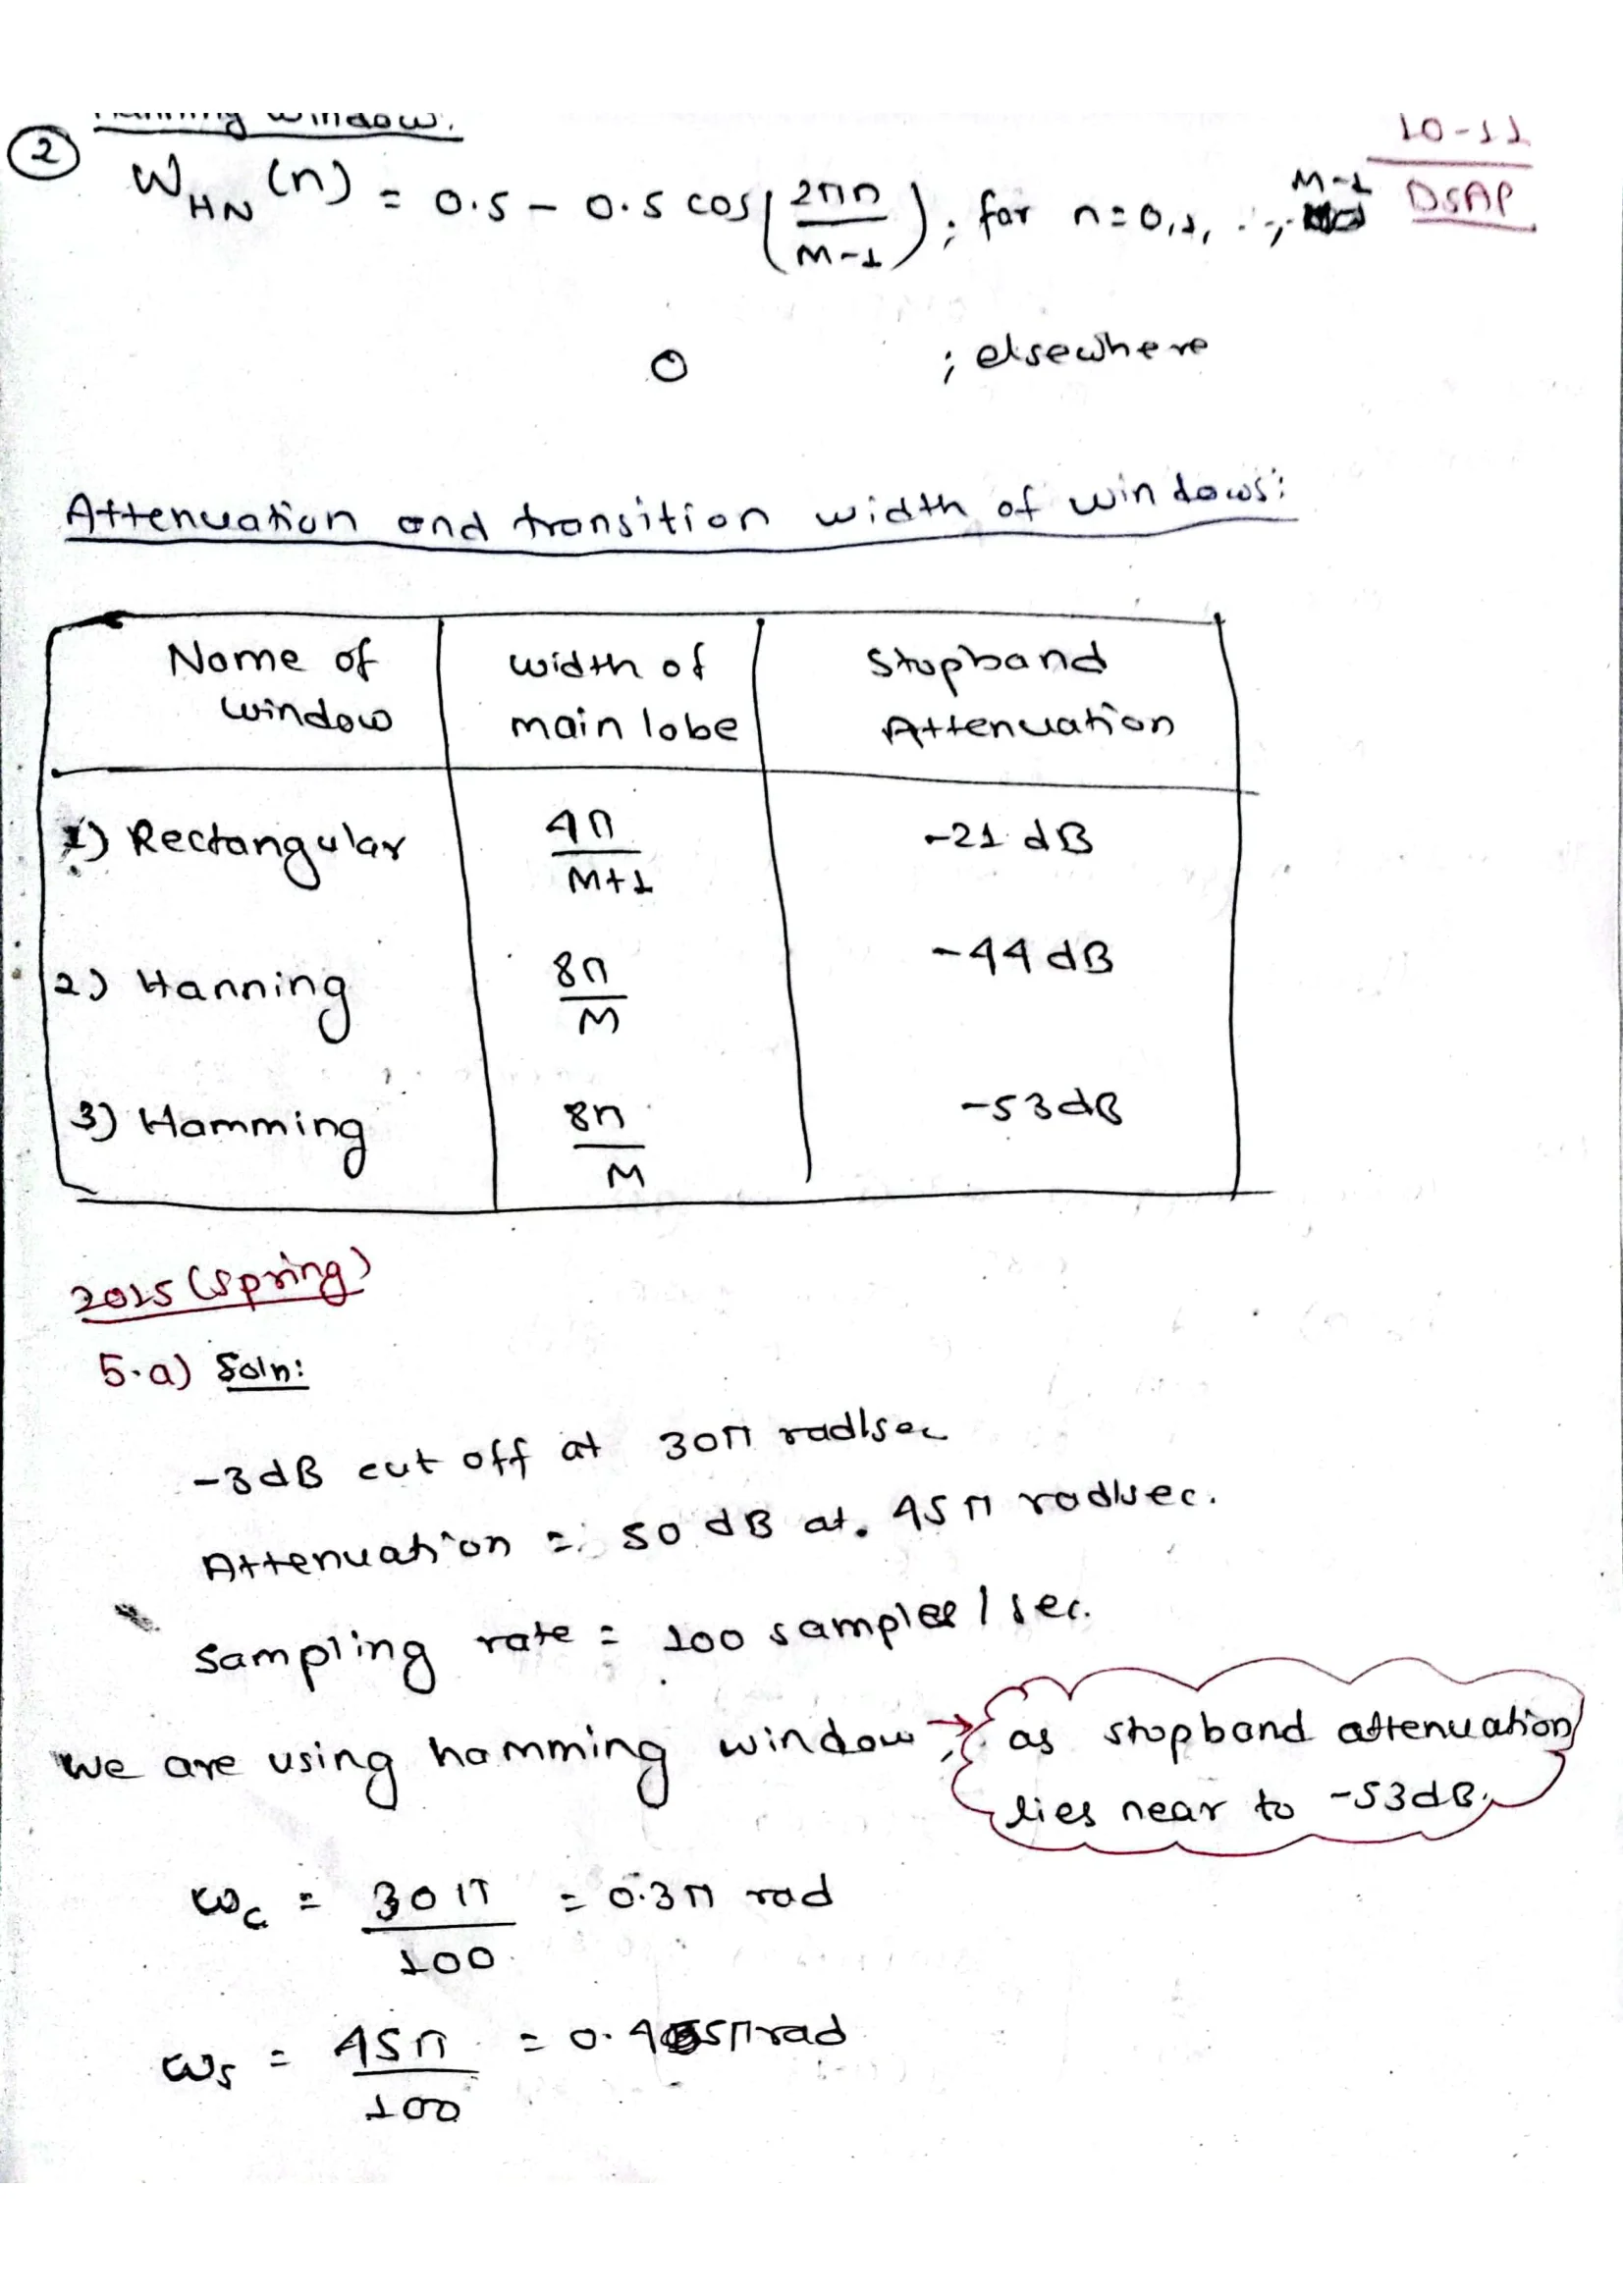 10-11
DSAP
② Hanning window:
W_HN (n) = 0.5 - 0.5 cos(2πn/M-1); for n=0,1, ..., M-1
0 ; elsewhere
Attenuation and transition width of windows:
Name of window | width of main lobe | Stopband Attenuation
1) Rectangular | 4π/M+1 | -21 dB
2) Hanning | 8π/M | -44 dB
3) Hamming | 8π/M | -53 dB
2015 (Spring)
5.a) Soln:
-3dB cut off at 30π rad/sec
Attenuation = 50 dB at. 45π rad/sec.
Sampling rate = 100 samples / sec.
We are using hamming window, → as stopband attenuation
lies near to -53dB.
ω_c = 30π/100 = 0.3π rad
ω_s = 45π/100 = 0.45π rad